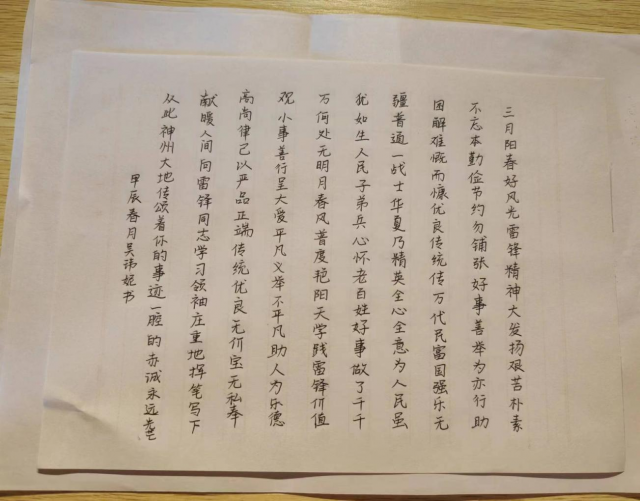 三月阳春好风光雷锋精神大发扬艰苦朴素
不忘本勤俭节约勿铺张好事善举为亦行助
困解难慨而慷优良传统传万代民富国强乐无
疆普通一战士华夏乃精英全心全意为人民虽
犹如生人民子弟兵心怀老百姓好事做了千千
万何处无明月春风普度艳阳天学践雷锋价值
观小事善行呈大爱平凡义举不平凡助人为乐德
高尚律己以严品正端传统优良无价宝无私奉
献暖人间向雷锋同志学习领袖庄重地挥笔写下
从此神州大地传颂着你的事迹一腔的赤诚永远光芒
甲辰春月吴祎妮书